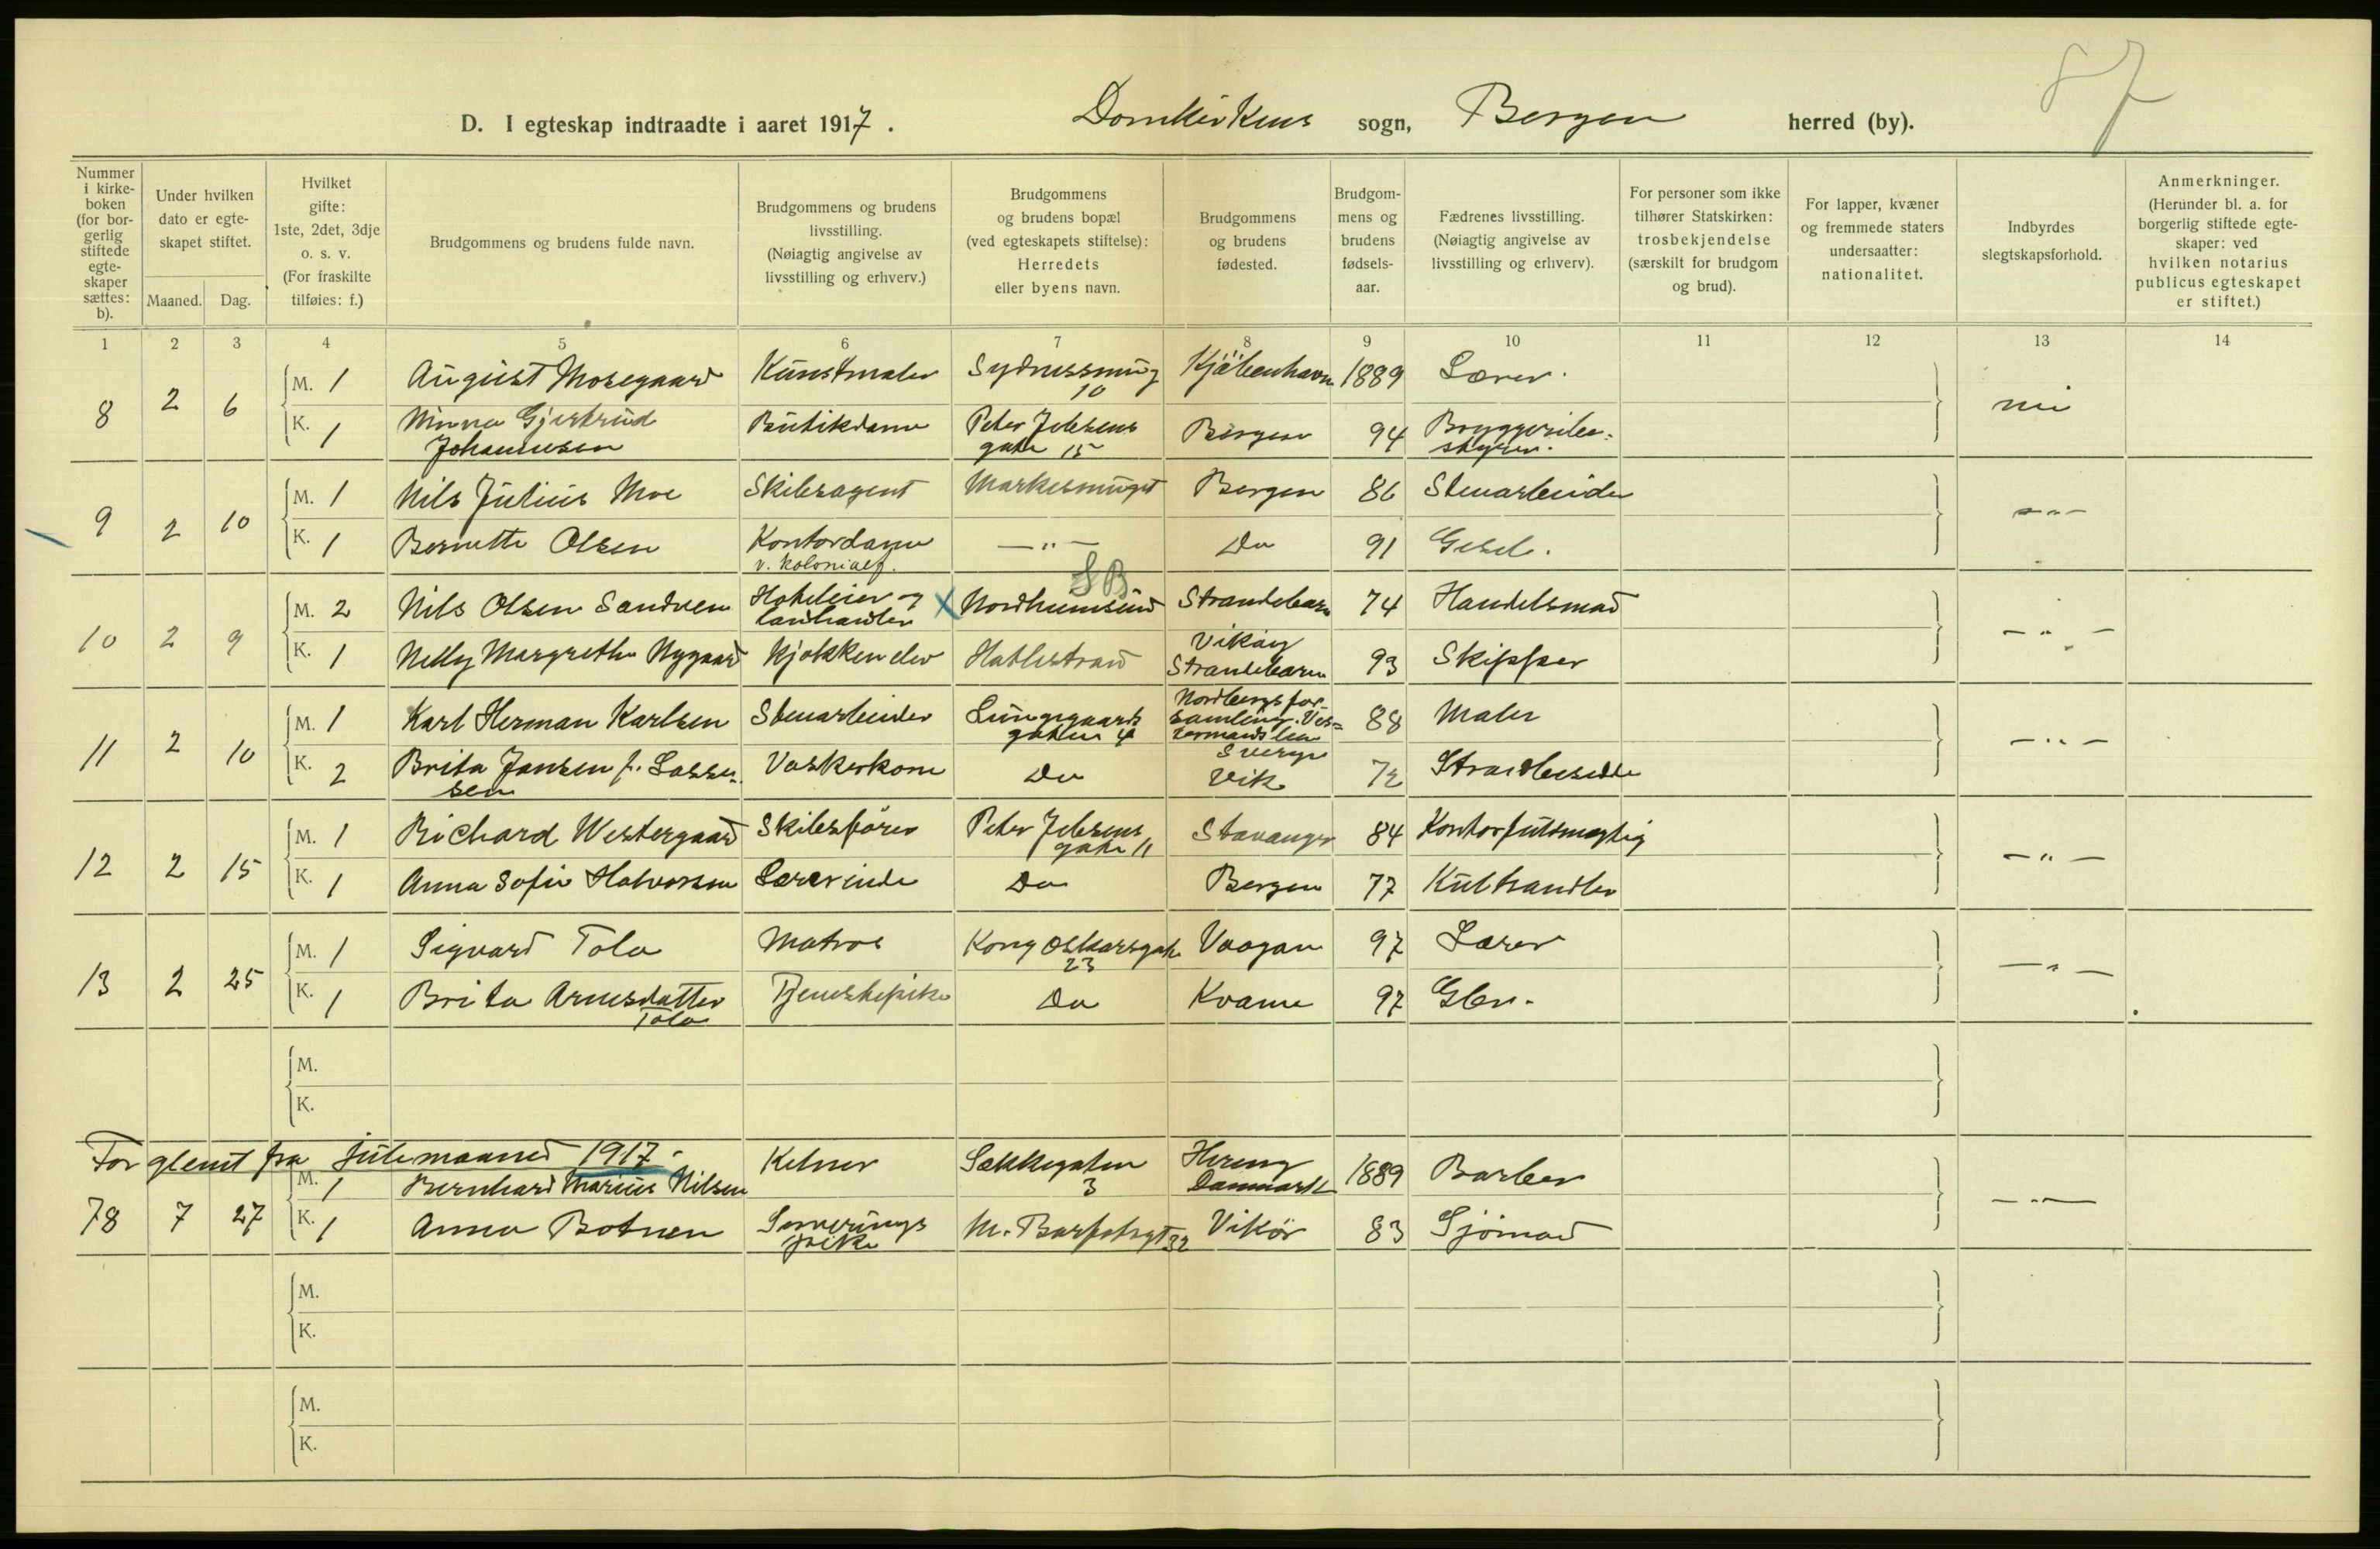 87
D. I egteskap indtraadte i aaret 1917. Domkirkens sogn, Bergen herred (by).
Nummer i kirke-boken (for bor-gerlig stiftede egte-skaper sættes: b).
Under hvilken dato er egte-skapet stiftet.
Maaned. Dag.
Hvilket gifte: 1ste, 2det, 3dje o. s. v. (For fraskilte tilføies: f.)
Brudgommens og brudens fulde navn.
Brudgommens og brudens livsstilling. (Nøiagtig angivelse av livsstilling og erhverv.)
Brudgommens og brudens bopæl (ved egteskapets stiftelse): Herredets eller byens navn.
Brudgommens og brudens fødested.
Brudgom-mens og brudens fødsels-aar.
Fædrenes livsstilling. (Nøiagtig angivelse av livsstilling og erhverv).
For personer som ikke tilhører Statskirken: trosbekjendelse (særskilt for brudgom og brud).
For lapper, kvæner og fremmede staters undersaatter: nationalitet.
Indbyrdes slegtskapsforhold.
Anmerkninger. (Herunder bl. a. for borgerlig stiftede egte-skaper: ved hvilken notarius publicus egteskapet er stiftet.)
1 2 3 4 5 6 7 8 9 10 11 12 13 14
8 2 6 M. 1 August Mosegaard Kunstmaler Sydnessmug 10 Kjöbenhavn 1889 Lærer.
K. 1 Minna Gjertrud Johannesen Butikdame Peter Jebsens gate 15 Bergen 94
9 2 10 M. 1 Nils Julius Moe Skibsagent Markesmuget Bergen 86 Stenarbeider -"-
K. 1 Bernette Olsen Kontordame v. kolonialf. -"- Do 91 Gesel.
SB
10 2 9 M. 2 Nils Olsen Sandven Hoteleier og landhandler X Nordheimsund Strandebarm 74 Handelsmand -"-
K. 1 Nelly Margrethe Nygaard Kjøkken elev Hatlestrand Strandebarm 93 Skipper
11 2 10 M. 1 Karl Herman Karlsen Stenarbeider Lungegaards gaten 4 Nordbergs for-samling. Ves= Sverge 88 Maler -"-
K. 2 Brita Jansen f. Lassesen Vaskerkone Do Vik 72 Strandsidder
12 2 15 M. 1 Richard Westergaard Skibsfører Peter Jebsens gate 11 Stavanger 84 Kontorfuldmægtig -"-
K. 1 Anna Sofie Halvorsen Lærerinde Do Bergen 77 Kulhandler
13 2 25 M. 1 Sigvard Tolo Matros Kong Oskarsgate 23 Vaagan 97 Lærer -"-
K. 1 Brita Arnesdatter Tolo Tjenestepike Do Kvame 97 Gbr.
M.
K.
For glemt fra Julimaaned 1917.
78 7 27 M. 1 Bernhard Marius Nilsen Kelner Sækkegaten 3 Danmark 1889 Barber -"-
K. 1 Anna Botnen Serverings pike M. Barfotsgt 32 Vikör 83 Sjömand
M.
K.
M.
K.